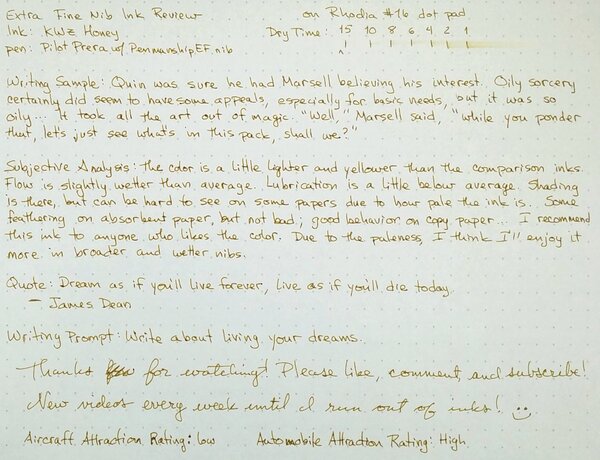 Extra Fine Nib Ink Review on Rhodia #16 dot pad
Ink: KWZ Honey Dry Time: 15 10 8 6 4 2 1
pen: Pilot Prera w/ Penmanship EF nib
Writing Sample: Quin was sure he had Marsell believing his interest. Oily sorcery
certainly did seem to have some appeals, especially for basic needs, but it was so
oily... It took all the art out of magic. "Well," Marsell said, "while you ponder
that, let's just see what's in this pack, shall we?"
Subjective Analysis: the color is a little lighter and yellower than the comparison inks.
Flow is slightly wetter than average. Lubrication is a little below average. Shading
is there, but can be hard to see on some papers due to how pale the ink is. Some
feathering on absorbent paper, but not bad; good behavior on copy paper... I recommend
this ink to anyone who likes the color. Due to the paleness, I think I'll enjoy it
more in broader and wetter nibs.
Quote: Dream as if you'll live forever, live as if you'll die today.
- James Dean
Writing Prompt: Write about living your dreams.
Thanks for watching! Please like, comment, and subscribe!
New videos every week until I run out of inks!
Aircraft Attraction Rating: low Automobile Attraction Rating: High